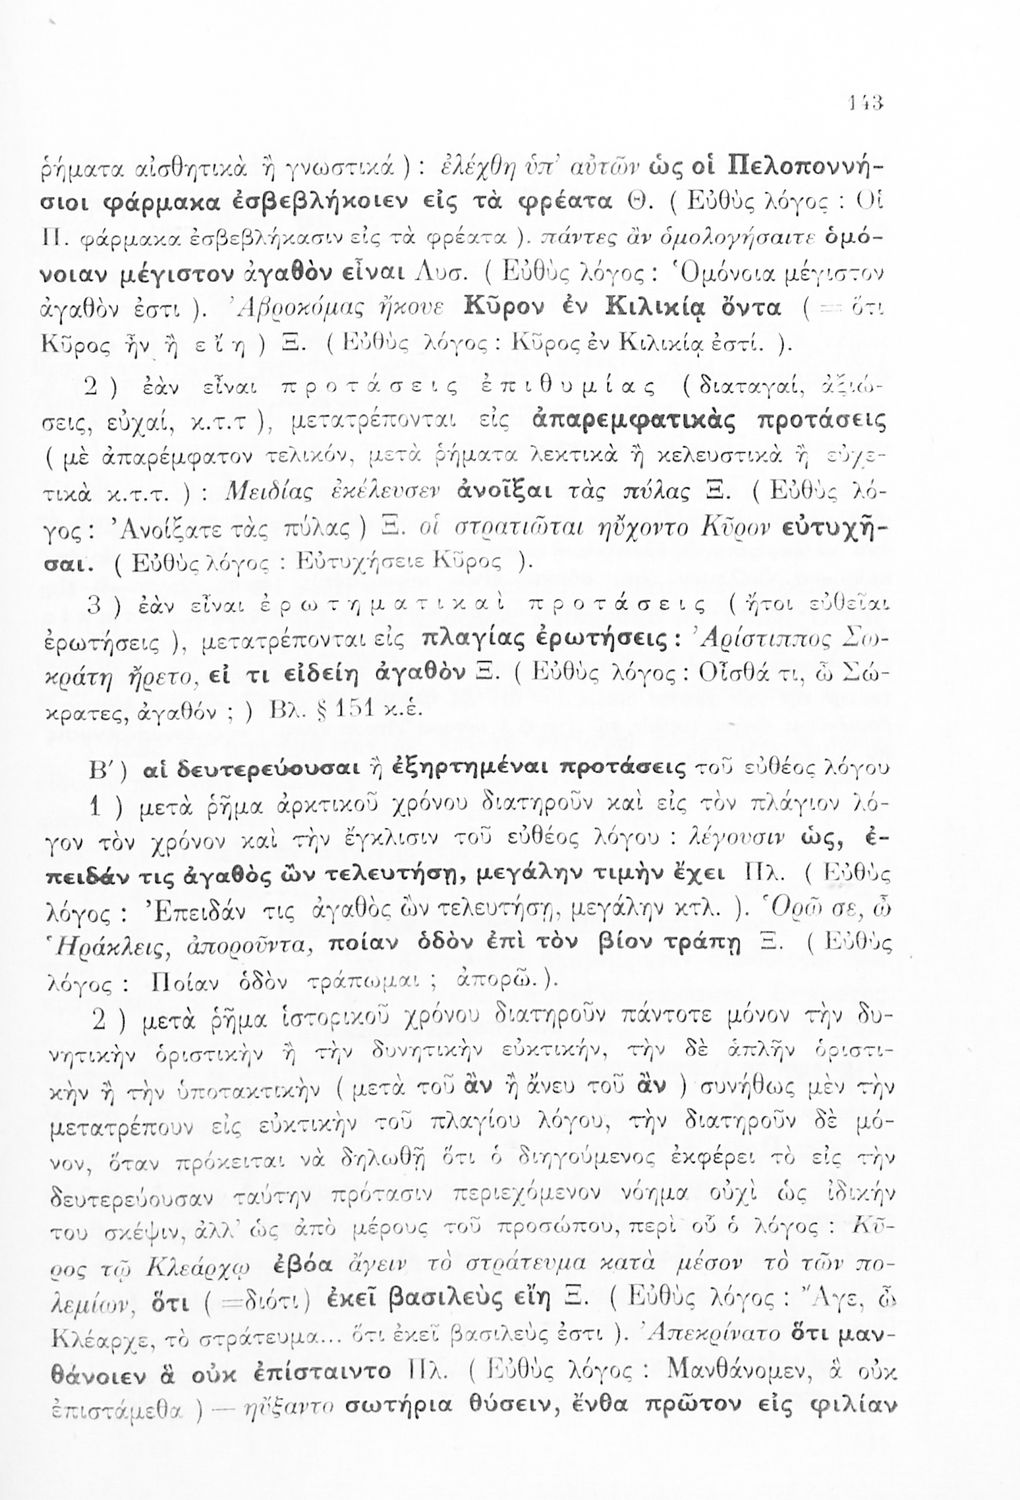 143
ῥήματα αἰσθητικὰ ἢ γνωστικά ) : ἐλέχθη ὑπ’ αὐτῶν ὡς οἱ Πελοποννή-
σιοι φάρμακα ἐσβεβλήκοιεν εἰς τὰ φρέατα Θ. ( Εὐθὺς λόγος : Οἱ
Π. φάρμακα ἐσβεβλήκασιν εἰς τὰ φρέατα ). πάντες ἂν ὁμολογήσαιτε ὁμό-
νοιαν μέγιστον ἀγαθὸν εἶναι Λυσ. ( Εὐθὺς λόγος : Ὁμόνοια μέγιστον
ἀγαθὸν ἐστι ). Ἀβροκόμας ἤκουε Κῦρον ἐν Κιλικίᾳ ὄντα ( = ὅτι
Κῦρος ἦν ἢ εἴη ) Ξ. ( Εὐθὺς λόγος : Κῦρος ἐν Κιλικίᾳ ἐστί. ).
2 ) ἐὰν εἶναι προτάσεις ἐπιθυμίας ( διαταγαί, ἀξιώ-
σεις, εὐχαί, κ.τ.τ ), μετατρέπονται εἰς ἀπαρεμφατικὰς προτάσεις
( μὲ ἀπαρέμφατον τελικόν, μετὰ ῥήματα λεκτικὰ ἢ κελευστικὰ ἢ εὐχε-
τικὰ κ.τ.τ. ) : Μειδίας ἐκέλευσεν ἀνοῖξαι τὰς πύλας Ξ. ( Εὐθὺς λό-
γος : Ἀνοίξατε τὰς πύλας ) Ξ. οἱ στρατιῶται ηὔχοντο Κῦρον εὐτυχῆ-
σαι. ( Εὐθὺς λόγος : Εὐτυχήσειε Κῦρος ).
3 ) ἐὰν εἶναι ἐρωτηματικαὶ προτάσεις ( ἤτοι εὐθεῖαι
ἐρωτήσεις ), μετατρέπονται εἰς πλαγίας ἐρωτήσεις : Ἀρίστιππος Σω-
κράτη ἤρετο, εἰ τι εἰδείη ἀγαθὸν Ξ. ( Εὐθὺς λόγος : Οἶσθά τι, ὦ Σώ-
κρατες, ἀγαθόν ; ) Βλ. § 151 κ.ἑ.
Β′) αἱ δευτερεύουσαι ἢ ἐξηρτημέναι προτάσεις τοῦ εὐθέος λόγου
1 ) μετὰ ῥῆμα ἀρκτικοῦ χρόνου διατηροῦν καὶ εἰς τὸν πλάγιον λό-
γον τὸν χρόνον καὶ τὴν ἔγκλισιν τοῦ εὐθέος λόγου : λέγουσιν ὡς, ἐ-
πειδάν τις ἀγαθὸς ὢν τελευτήσῃ, μεγάλην τιμὴν ἔχει Πλ. ( Εὐθὺς
λόγος : Ἐπειδάν τις ἀγαθὸς ὢν τελευτήσῃ, μεγάλην κτλ. ). Ὁρῶ σε, ὦ
Ἡράκλεις, ἀποροῦντα, ποίαν ὁδὸν ἐπὶ τὸν βίον τράπῃ Ξ. ( Εὐθὺς
λόγος : Ποίαν ὁδὸν τράπωμαι ; ἀπορῶ. ).
2 ) μετὰ ῥῆμα ἱστορικοῦ χρόνου διατηροῦν πάντοτε μόνον τὴν δυ-
νητικὴν ὁριστικὴν ἢ τὴν δυνητικὴν εὐκτικήν, τὴν δὲ ἁπλῆν ὁριστι-
κὴν ἢ τὴν ὑποτακτικὴν ( μετὰ τοῦ ἂν ἢ ἄνευ τοῦ ἂν ) συνήθως μὲν τὴν
μετατρέπουν εἰς εὐκτικὴν τοῦ πλαγίου λόγου, τὴν διατηροῦν δὲ μό-
νον, ὅταν πρόκειται νὰ δηλωθῇ ὅτι ὁ διηγούμενος ἐκφέρει τὸ εἰς τὴν
δευτερεύουσαν ταύτην πρότασιν περιεχόμενον νόημα οὐχὶ ὡς ἰδικήν
του σκέψιν, ἀλλ’ ὡς ἀπὸ μέρους τοῦ προσώπου, περὶ οὗ ὁ λόγος : Κῦ-
ρος τῷ Κλεάρχῳ ἐβόα ἄγειν τὸ στράτευμα κατὰ μέσον τὸ τῶν πο-
λεμίων, ὅτι ( =διότι) ἐκεῖ βασιλεὺς εἴη Ξ. ( Εὐθὺς λόγος : Ἄγε, ὦ
Κλέαρχε, τὸ στράτευμα... ὅτι ἐκεῖ βασιλεὺς ἐστι ). Ἀπεκρίνατο ὅτι μαν-
θάνοιεν ἃ οὐκ ἐπίσταιντο Πλ. ( Εὐθὺς λόγος : Μανθάνομεν, ἃ οὐκ
ἐπιστάμεθα ) — ηὔξαντο σωτήρια θύσειν, ἔνθα πρῶτον εἰς φιλίαν